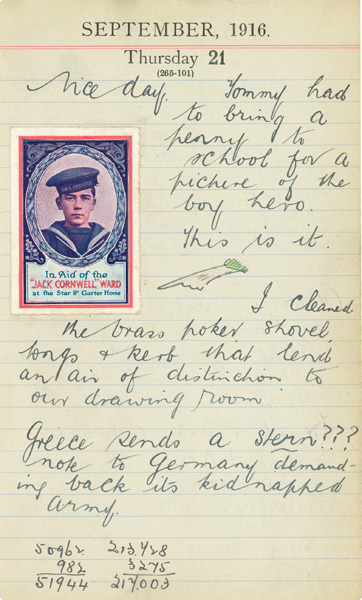 SEPTEMBER, 1916.
Thursday 21
(265-101)
Nice day. Tommy had
to bring a
penny to
school for a
picture of the
boy hero.
This is it.
In Aid of the
"JACK CORNWELL" WARD
at the Star & Garter Home
I cleaned
the brass poker shovel
tongs & kerb that lend
an air of distinction to
our drawing room
Greece sends a stern???
note to Germany demand-
ing back its kidnapped
Army.
50962 213,728
982 3275
51944 217,003